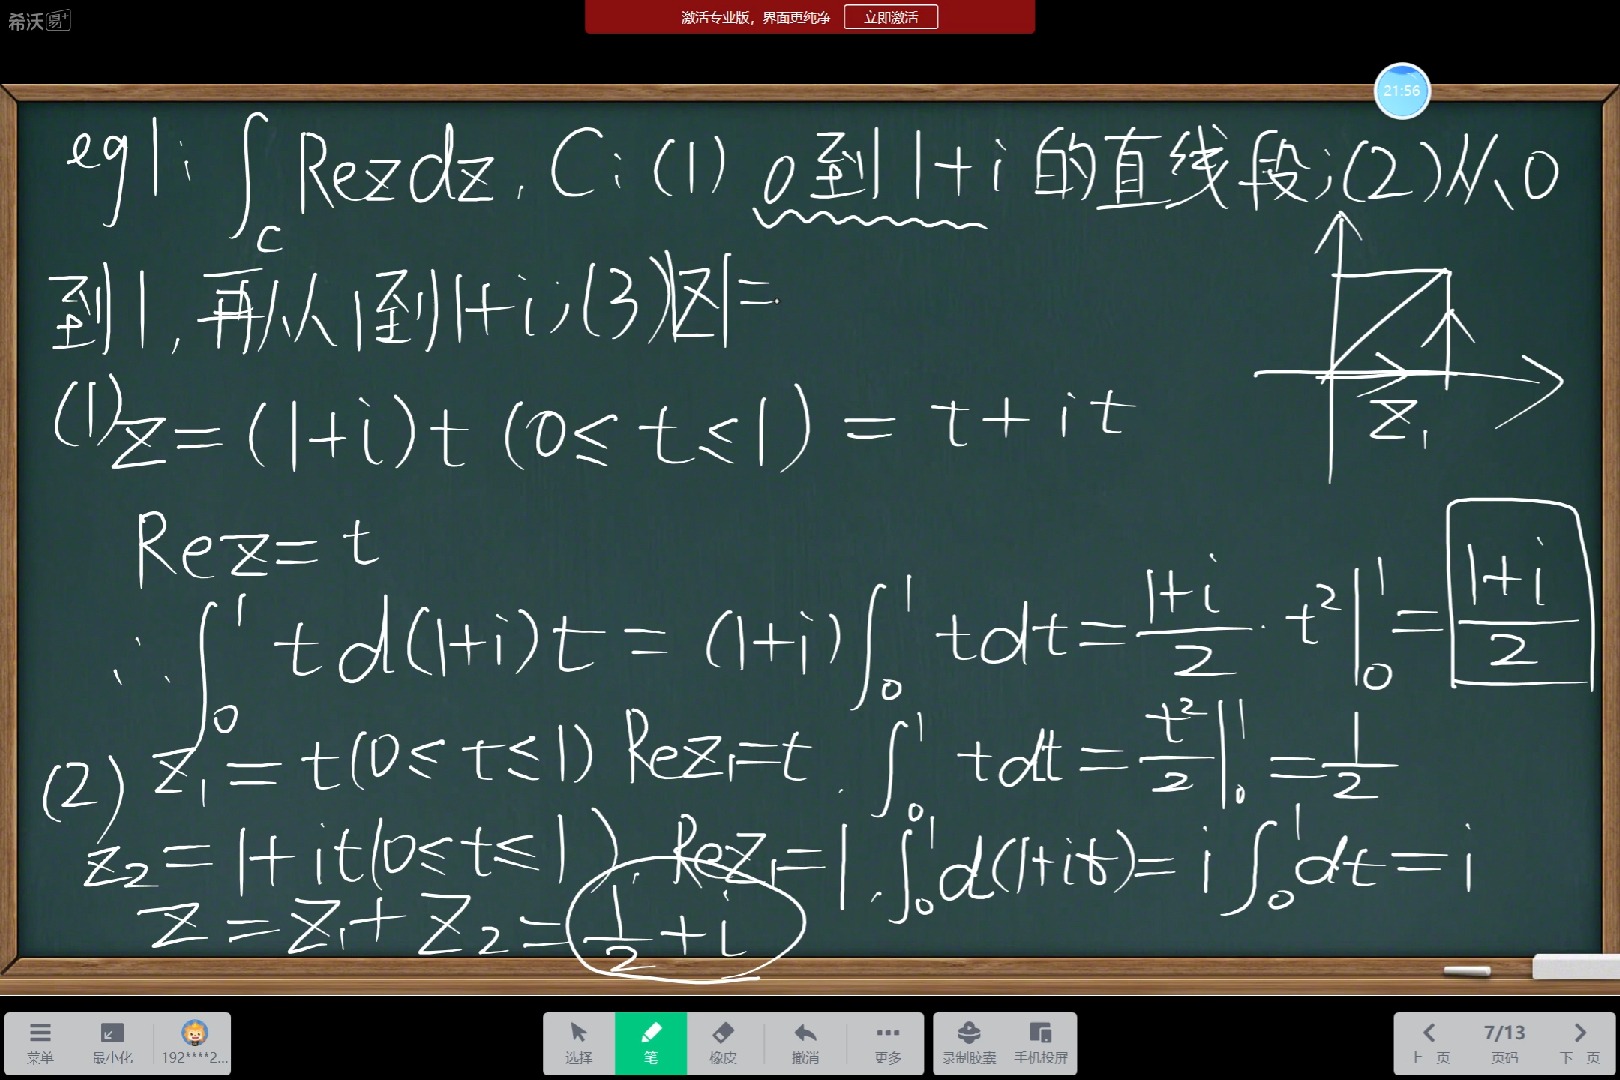 希沃易+
激活专业版，界面更纯净 立即激活
21:56
eg1: ∫_C Rez dz, C: (1) 0到1+i的直线段;(2)从0
到1,再从1到1+i;(3)|z|=
(1) z=(1+i)t (0≤t≤1) = t+it
z₁
Rez=t
∴ ∫₀¹ t d(1+i)t = (1+i)∫₀¹ tdt = (1+i)/2 · t²|₀¹ = (1+i)/2
(2) z₁=t(0≤t≤1) Rez₁=t. ∫₀¹ tdt = t²/2|₀¹ = 1/2
z₂=1+it(0≤t≤1). Rez₁=1. ∫₀¹d(1+it)=i∫₀¹dt=i
z=z₁+z₂=1/2+i
菜单 最小化 192****2... 选择 笔 橡皮 撤消 更多 录制胶囊 手机投屏 上一页 7/13 页码 下一页